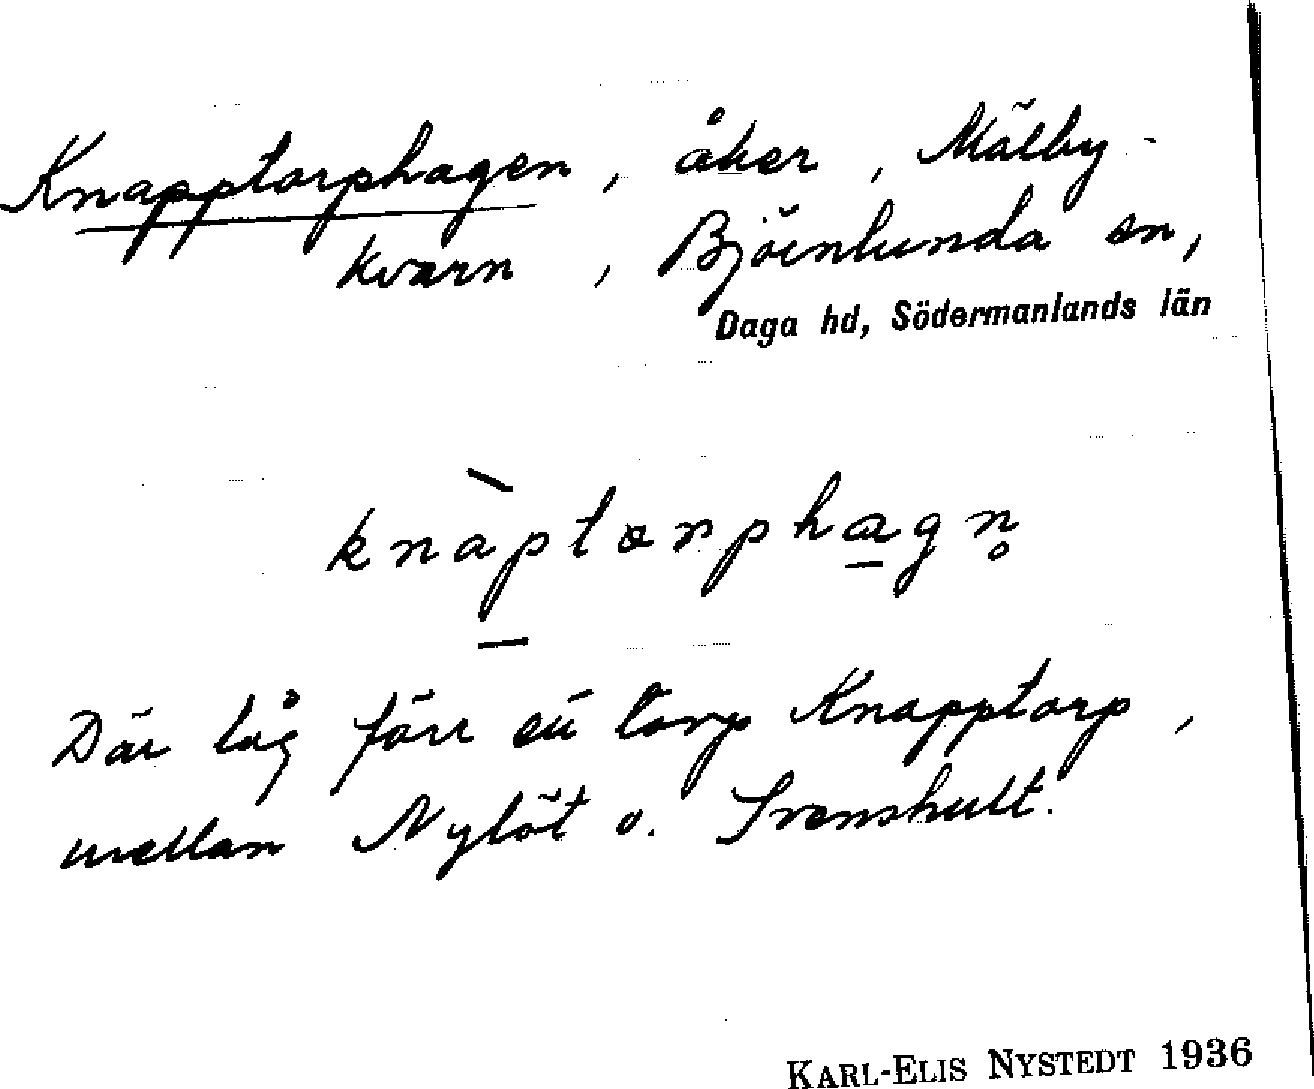 Knapptorphagen, åker, Mälby-
kvarn, Björnlunda sn,
Daga hd, Södermanlands län
knàptorphagn̥
Där låg förr ett torp Knapptorp,
mellan Nylöt o. Svenshult.
KARL-ELIS NYSTEDT 1936